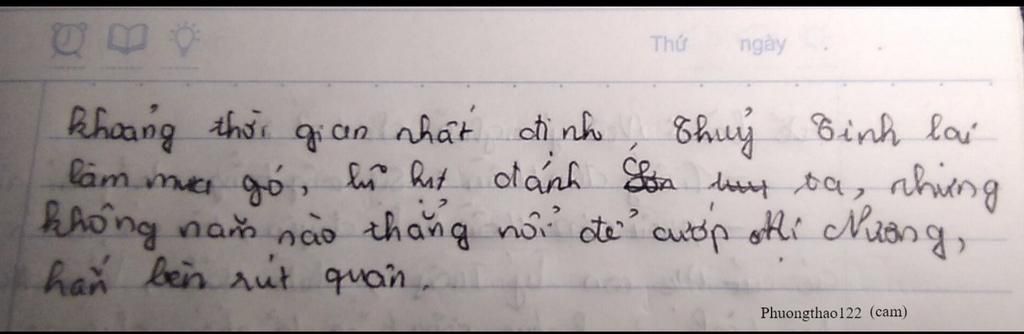 Thứ ngày
khoảng thời gian nhất định Thuỷ Tinh lại
làm mưa gó, lũ lụt đánh ta, nhưng
không năm nào thắng nổi để cướp Mị Nương,
hắn bèn rút quân.
Phuongthao122 (cam)